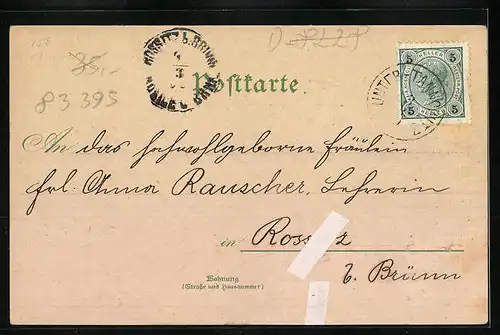 83 395
ROSSITZ b. BRÜNN
Postkarte.
5 HELLER 5
5 5
UNTER-TANNO
An das hochwohlgeborne Fräulein
Frl. Anna Rauscher, Lehrerin
in Rossitz
b. Brünn
Wohnung
(Straße und Hausnummer)